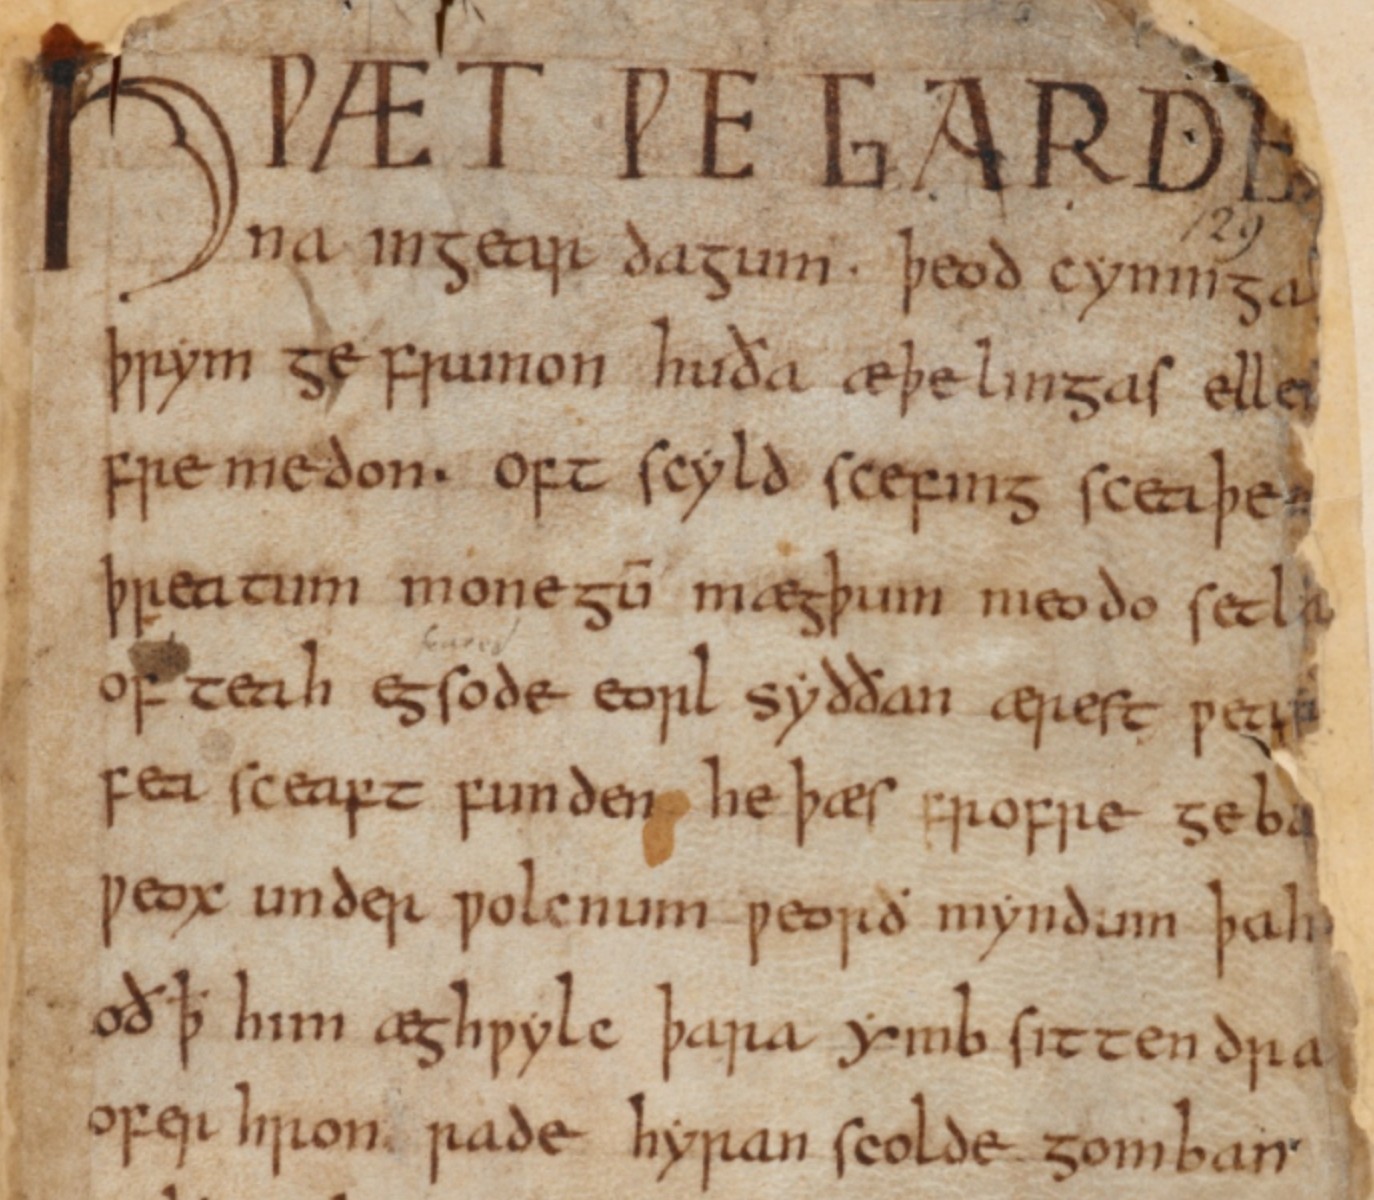 HǷÆT ǷE GARDE
na ingear dagum. þeod cyninga
þrym ge frunon huða æþelingas ellen
fremedon. oft scyld scefing sceaþe
þreatum monegū mægþum meodo setla
of teah egsode eorl syððan ærest ƿearð
fea sceaft funden he þæs frofre geba
ƿeox under ƿolcnum ƿeorð myndum þah
oð ꝥ him æghƿylc þara ymb sittendra
ofer hron rade hyran scolde gomban
129